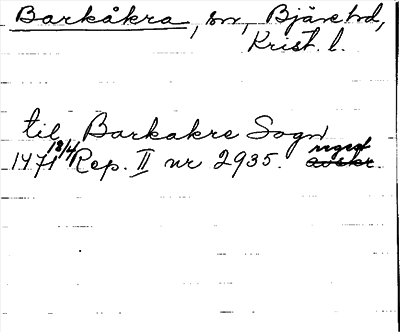 Barkåkra, sn, Bjäre hd,
Krist. l.
til Barkakre Sogn
1471 18/4 Rep. II nr 2935. regest
avskr.